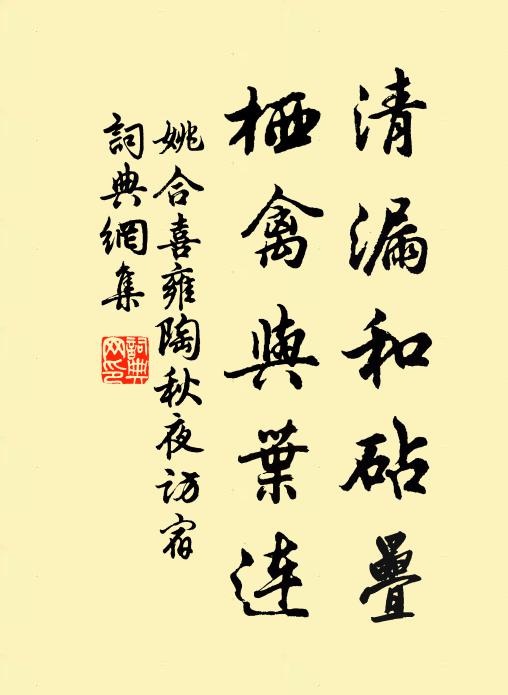 清漏和砧疊
栖禽與葉連
姚合喜雍陶秋夜访宿
詞典網集
詞典网印